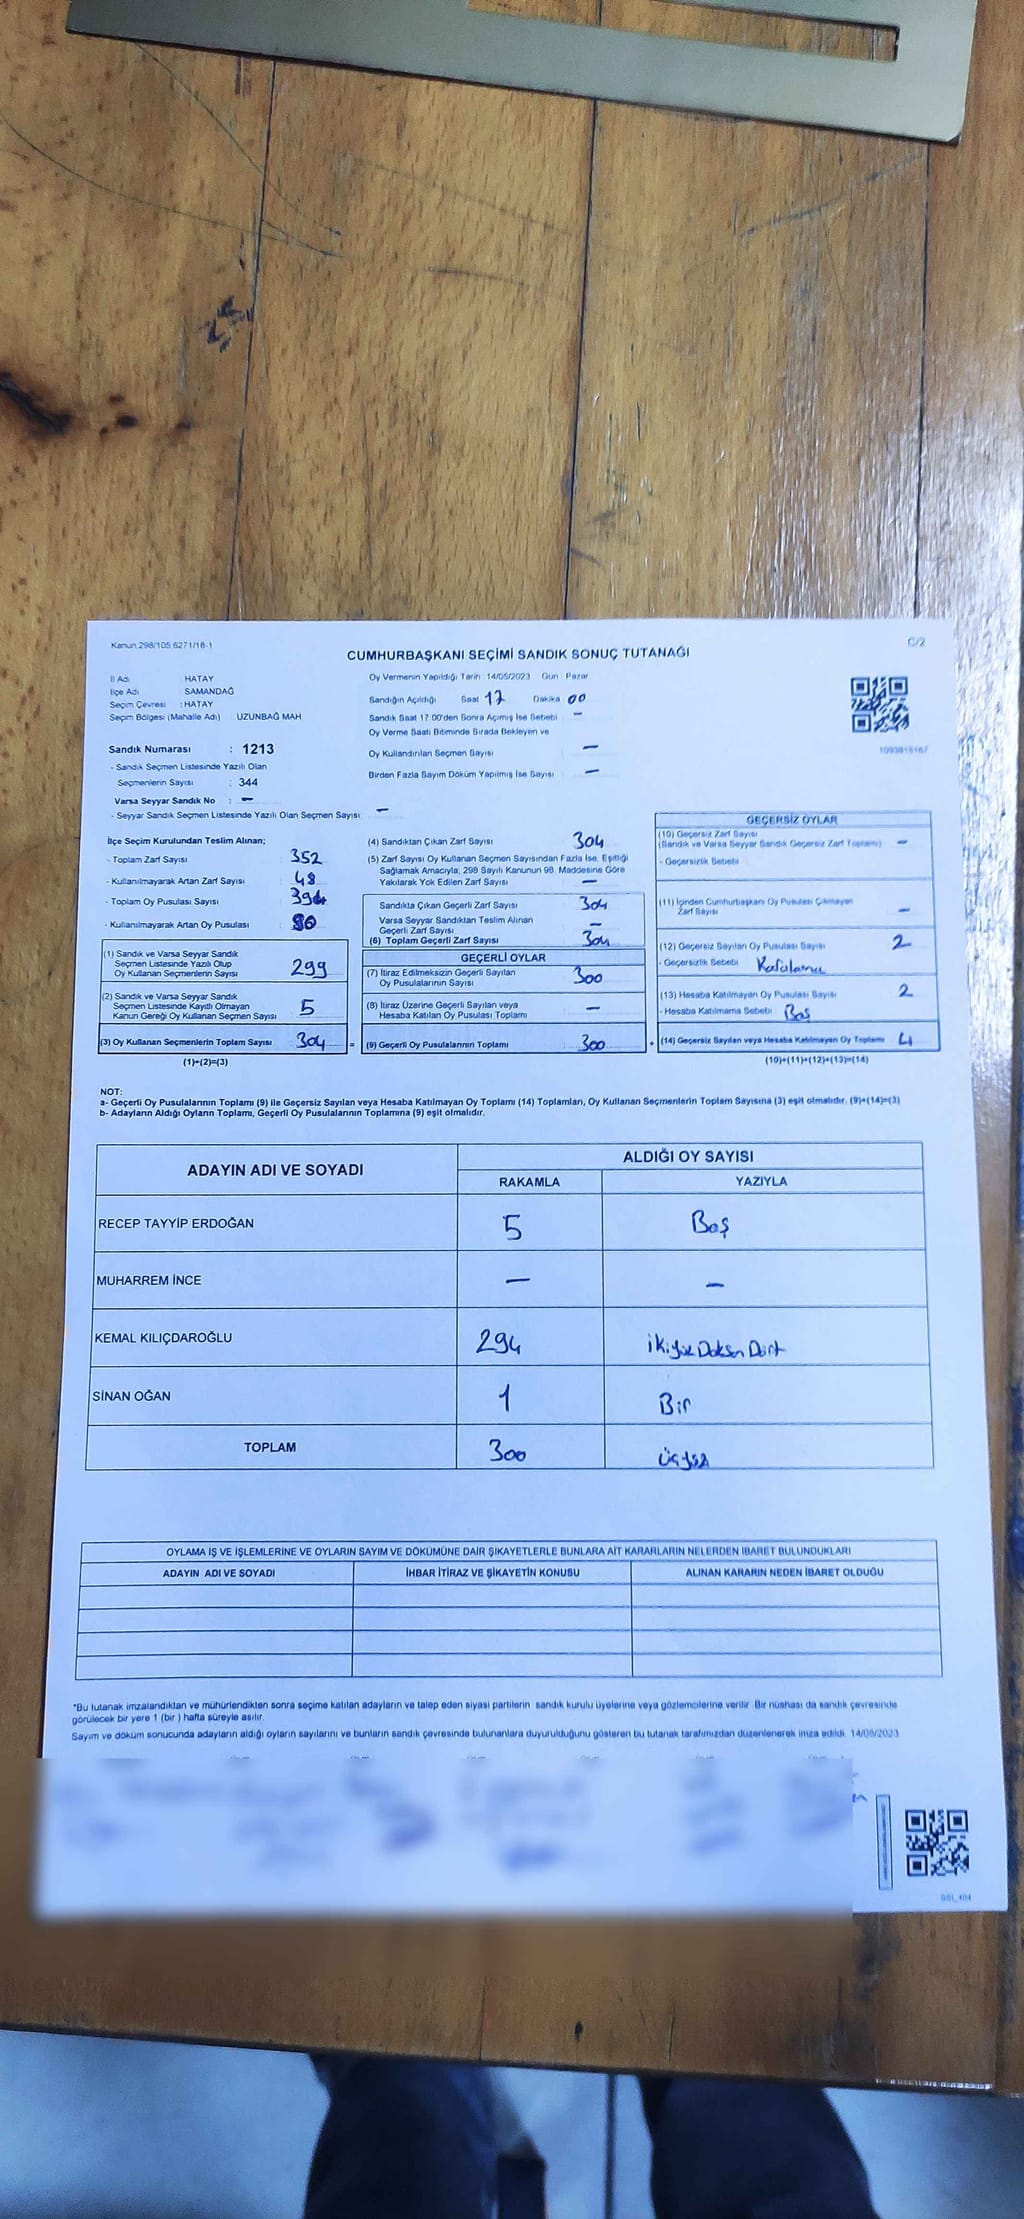 Kanun 298/105 6271/18-1
C/2
CUMHURBAŞKANI SEÇİMİ SANDIK SONUÇ TUTANAĞI
İl Adı HATAY
İlçe Adı SAMANDAĞ
Seçim Çevresi : HATAY
Seçim Bölgesi (Mahalle Adı) UZUNBAĞ MAH
Sandık Numarası : 1213
- Sandık Seçmen Listesinde Yazılı Olan
Seçmenlerin Sayısı : 344
Varsa Seyyar Sandık No : -
- Seyyar Sandık Seçmen Listesinde Yazılı Olan Seçmen Sayısı -
Oy Vermenin Yapıldığı Tarih 14/05/2023 Gün Pazar
Sandığın Açıldığı Saat 17 Dakika 00
Sandık Saat 17.00'den Sonra Açmış İse Sebebi -
Oy Verme Saati Bitiminde Sırada Bekleyen ve
Oy Kullandırılan Seçmen Sayısı -
Birden Fazla Sayım Döküm Yapılmış İse Sayısı -
İlçe Seçim Kurulundan Teslim Alınan;
- Toplam Zarf Sayısı 352
- Kullanılmayarak Artan Zarf Sayısı 48
- Toplam Oy Pusulası Sayısı
- Kullanılmayarak Artan Oy Pusulası
(1) Sandık ve Varsa Seyyar Sandık
Seçmen Listesinde Yazılı Olup
Oy Kullanan Seçmenlerin Sayısı 299
(2) Sandık ve Varsa Seyyar Sandık
Seçmen Listesinde Kayıtlı Olmayan
Kanun Gereği Oy Kullanan Seçmen Sayısı 5
(3) Oy Kullanan Seçmenlerin Toplam Sayısı 304 =
(1)+(2)=(3)
(4) Sandıktan Çıkan Zarf Sayısı 304
(5) Zarf Sayısı Oy Kullanan Seçmen Sayısından Fazla İse, Eşitliği
Sağlamak Amacıyla, 298 Sayılı Kanunun 98. Maddesine Göre
Yakılarak Yok Edilen Zarf Sayısı -
Sandıkta Çıkan Geçerli Zarf Sayısı 304
Varsa Seyyar Sandıktan Teslim Alınan
Geçerli Zarf Sayısı -
(6) Toplam Geçerli Zarf Sayısı 304
GEÇERLİ OYLAR
(7) İtiraz Edilmeksizin Geçerli Sayılan
Oy Pusulalarının Sayısı 300
(8) İtiraz Üzerine Geçerli Sayılan veya
Hesaba Katılan Oy Pusulası Toplamı -
(9) Geçerli Oy Pusulalarının Toplamı 300 +
GEÇERSİZ OYLAR
(10) Geçersiz Zarf Sayısı
(Sandık ve Varsa Seyyar Sandık Geçersiz Zarf Toplamı) -
- Geçersizlik Sebebi
(11) İçinden Cumhurbaşkanı Oy Pusulası Çıkmayan
Zarf Sayısı -
(12) Geçersiz Sayılan Oy Pusulası Sayısı 2
- Geçersizlik Sebebi
(13) Hesaba Katılmayan Oy Pusulası Sayısı 2
- Hesaba Katılmama Sebebi Boş
(14) Geçersiz Sayılan veya Hesaba Katılmayan Oy Toplamı 4
(10)+(11)+(12)+(13)=(14)
NOT:
a- Geçerli Oy Pusulalarının Toplamı (9) ile Geçersiz Sayılan veya Hesaba Katılmayan Oy Toplamı (14) Toplamları, Oy Kullanan Seçmenlerin Toplam Sayısına (3) eşit olmalıdır. (9)+(14)=(3)
b- Adayların Aldığı Oyların Toplamı, Geçerli Oy Pusulalarının Toplamına (9) eşit olmalıdır.
ADAYIN ADI VE SOYADI ALDIĞI OY SAYISI
RAKAMLA YAZIYLA
RECEP TAYYİP ERDOĞAN 5 Beş
MUHARREM İNCE - -
KEMAL KILIÇDAROĞLU 294 ikiyüz Doksan Dört
SİNAN OĞAN 1 Bir
TOPLAM 300 üçyüz
OYLAMA İŞ VE İŞLEMLERİNE VE OYLARIN SAYIM VE DÖKÜMÜNE DAİR ŞİKAYETLERLE BUNLARA AİT KARARLARIN NELERDEN İBARET BULUNDUKLARI
ADAYIN ADI VE SOYADI İHBAR İTİRAZ VE ŞİKAYETİN KONUSU ALINAN KARARIN NEDEN İBARET OLDUĞU
*Bu tutanak imzalandıktan ve mühürlendikten sonra seçime katılan adayların ve talep eden siyasi partilerin sandık kurulu üyelerine veya gözlemcilerine verilir. Bir nüshası da sandık çevresinde
görülecek bir yere 1 (bir) hafta süreyle asılır.
Sayım ve döküm sonucunda adayların aldığı oyların sayılarını ve bunların sandık çevresinde bulunanlara duyurulduğunu gösteren bu tutanak tarafımızdan düzenlenerek imza edildi. 14/05/2023